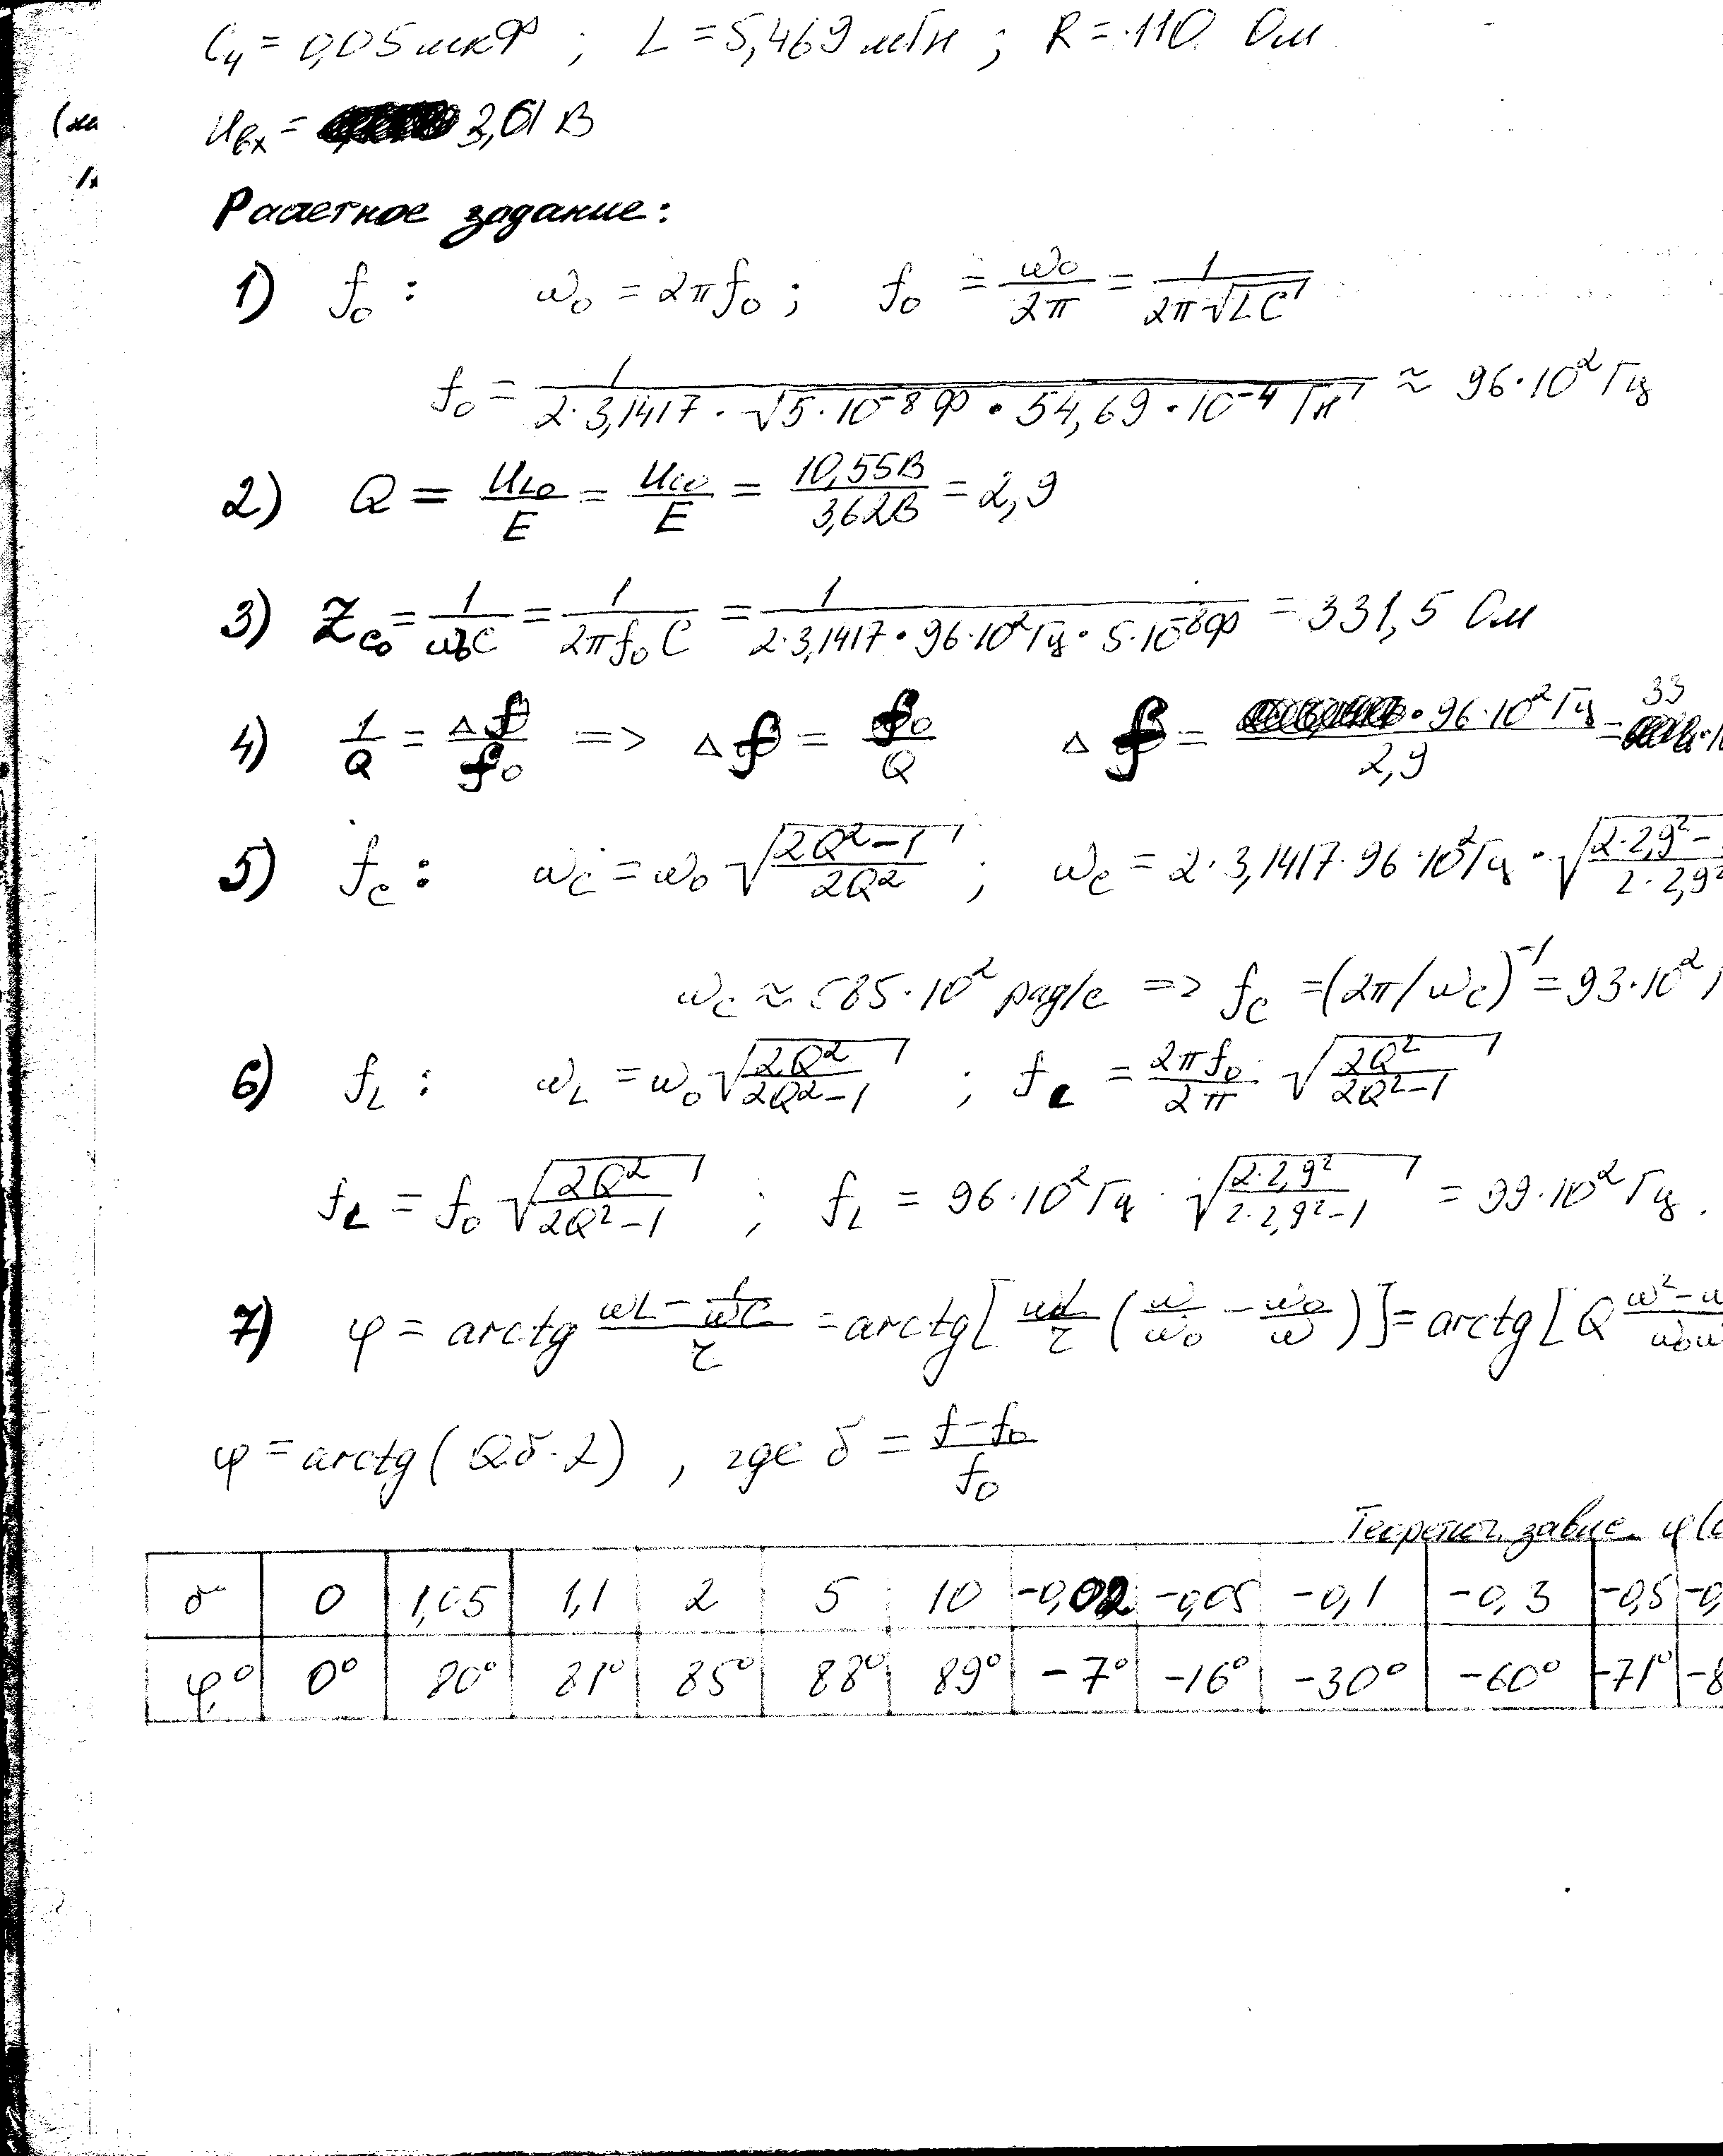 C₄ = 0,05 мкФ ; L = 5,469 мГн ; R = 110 Ом
Uвх = 3,61 В
Расчетное задание:
1) f₀ : ω₀ = 2πf₀ ; f₀ = ω₀/2π = 1/(2π√LC)
f₀ = 1/(2·3,1417·√(5·10⁻⁸ Ф · 54,69·10⁻⁴ Гн)) ≈ 96·10² Гц
2) Q = U_L0/E = U_C0/E = 10,55В/3,62В = 2,9
3) Z_C0 = 1/(ω₀C) = 1/(2πf₀C) = 1/(2·3,1417·96·10² Гц·5·10⁻⁸ Ф) = 331,5 Ом
4) 1/Q = Δf/f₀ => Δf = f₀/Q Δf = 96·10² Гц/2,9 = 33
5) f_C : ω_C = ω₀ √((2Q²-1)/2Q²) ; ω_C = 2·3,1417·96·10² Гц · √((2·2,9²-)/(2·2,9²
ω_C ≈ 585·10² рад/с => f_C = (2π/ω_C)⁻¹ = 93·10²
6) f_L : ω_L = ω₀ √(2Q²/(2Q²-1)) ; f_L = 2πf₀/2π √(2Q²/(2Q²-1))
f_L = f₀ √(2Q²/(2Q²-1)) ; f_L = 96·10² Гц · √(2·2,9²/(2·2,9²-1)) = 99·10² Гц.
7) φ = arctg (ωL - 1/ωC)/r = arctg[ω₀L/r (ω/ω₀ - ω₀/ω)] = arctg[Q (ω²-ω)/(ω₀ω
φ = arctg(Qδ·2) , где δ = (f-f₀)/f₀
Теоретич. завис. φ(
δ 0 1,05 1,1 2 5 10 -0,02 -0,05 -0,1 -0,3 -0,5 -0,
φ,° 0° 80° 81° 85° 88° 89° -7° -16° -30° -60° -71° -8